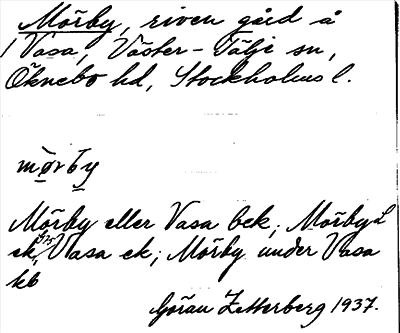 Mörby, riven gård å
/ Vasa, Väster-Tälje sn,
Öknebo hd, Stockholms l.
mörby
Mörby eller Vasa bek; Mörby L
ek, 375 Vasa ek; Mörby under Vasa
kb
Göran Zetterberg 1937.